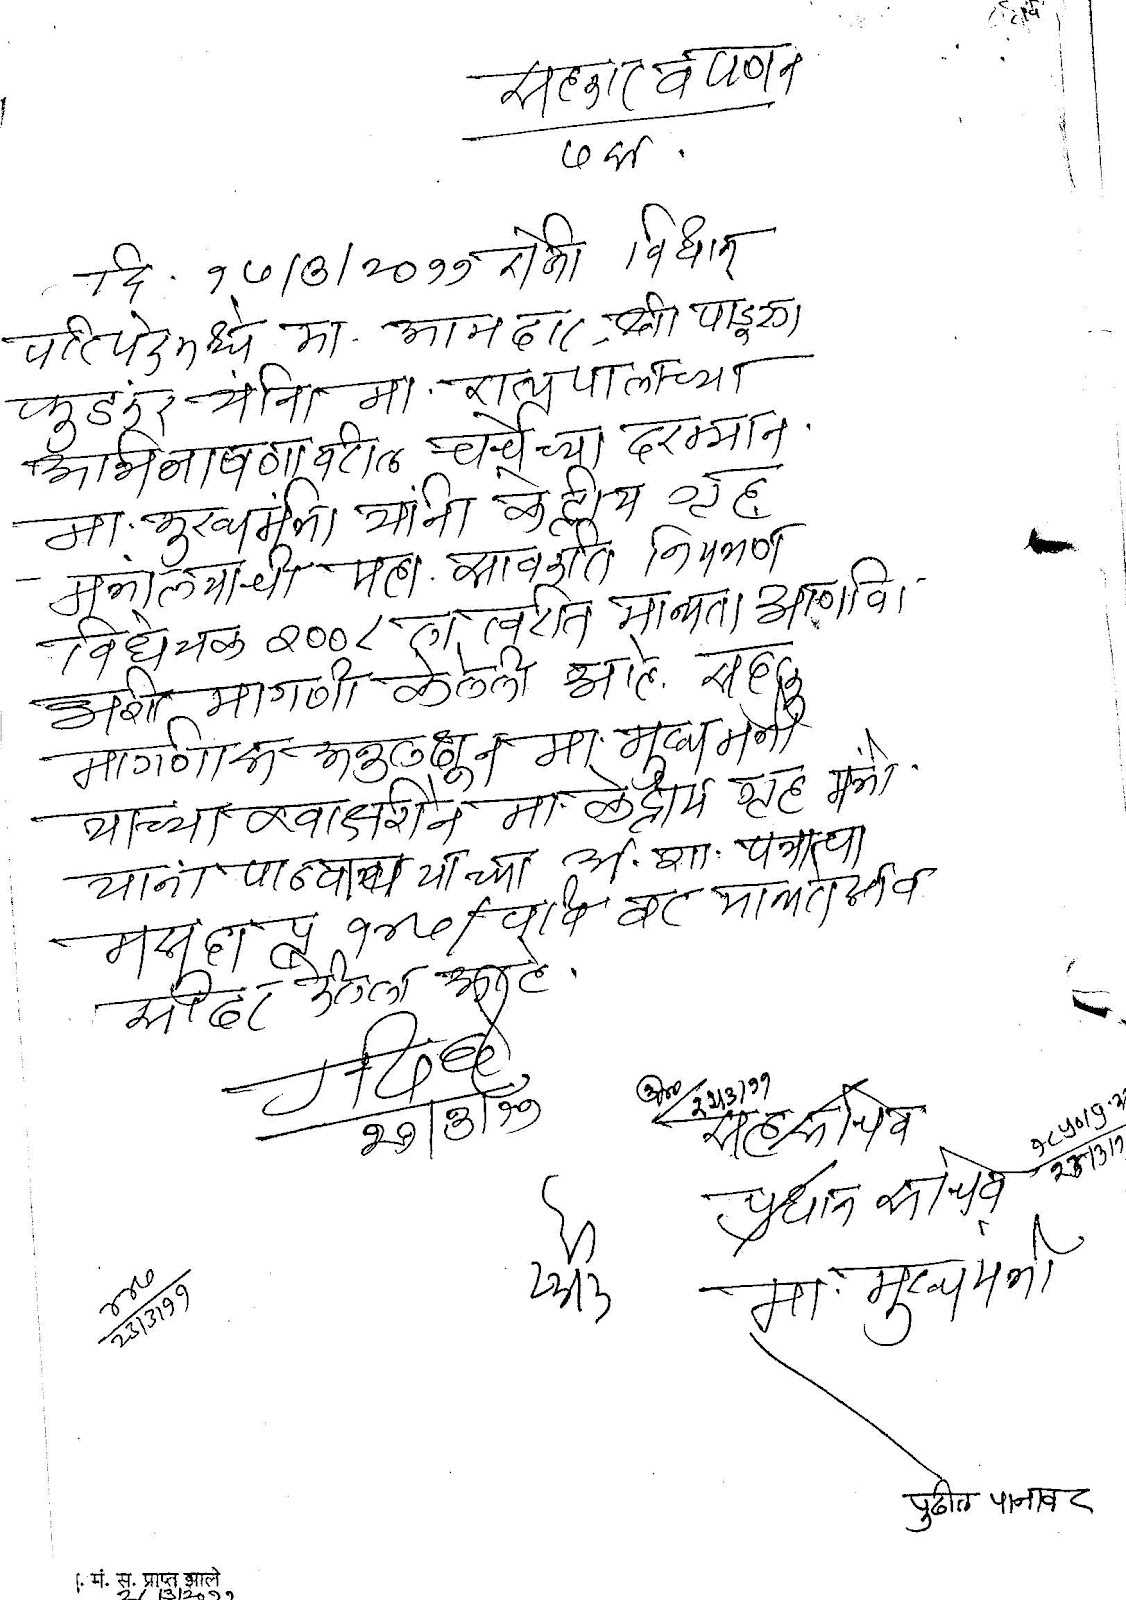 सहकार व पणन
७ स.
दि. १७/३/२०११ रोजी विधान
परिषदेमध्ये मा. आमदार, श्री पांडूरंग
फुंडकर यांनी मा. राज्यपालांच्या
अभिभाषणावरील चर्चेच्या दरम्यान
मा. मुख्यमंत्री यांनी केंद्रीय गृह
मंत्रालयाची महा. सावकारी नियंत्रण
विधेयक २००८ ला त्वरीत मान्यता आणावी
अशी मागणी केलेली आहे. सदर
मागणीस अनुलक्षून मा. मुख्यमंत्री
यांच्या स्वाक्षरीने मा. केंद्रीय गृह मंत्री
यांना पाठवावयाच्या अ. शा. पत्राचा
मसूदा पृ १४७/ वर मान्यतेस्तव
सादर केलेला आहे.
२१/३/११
२२/३/११
सहसचिव
प्रधान सचिव
मा. मुख्यमंत्री
४४७
२३/३/११
पुढील पानावर
. मं. स. प्राप्त झाले